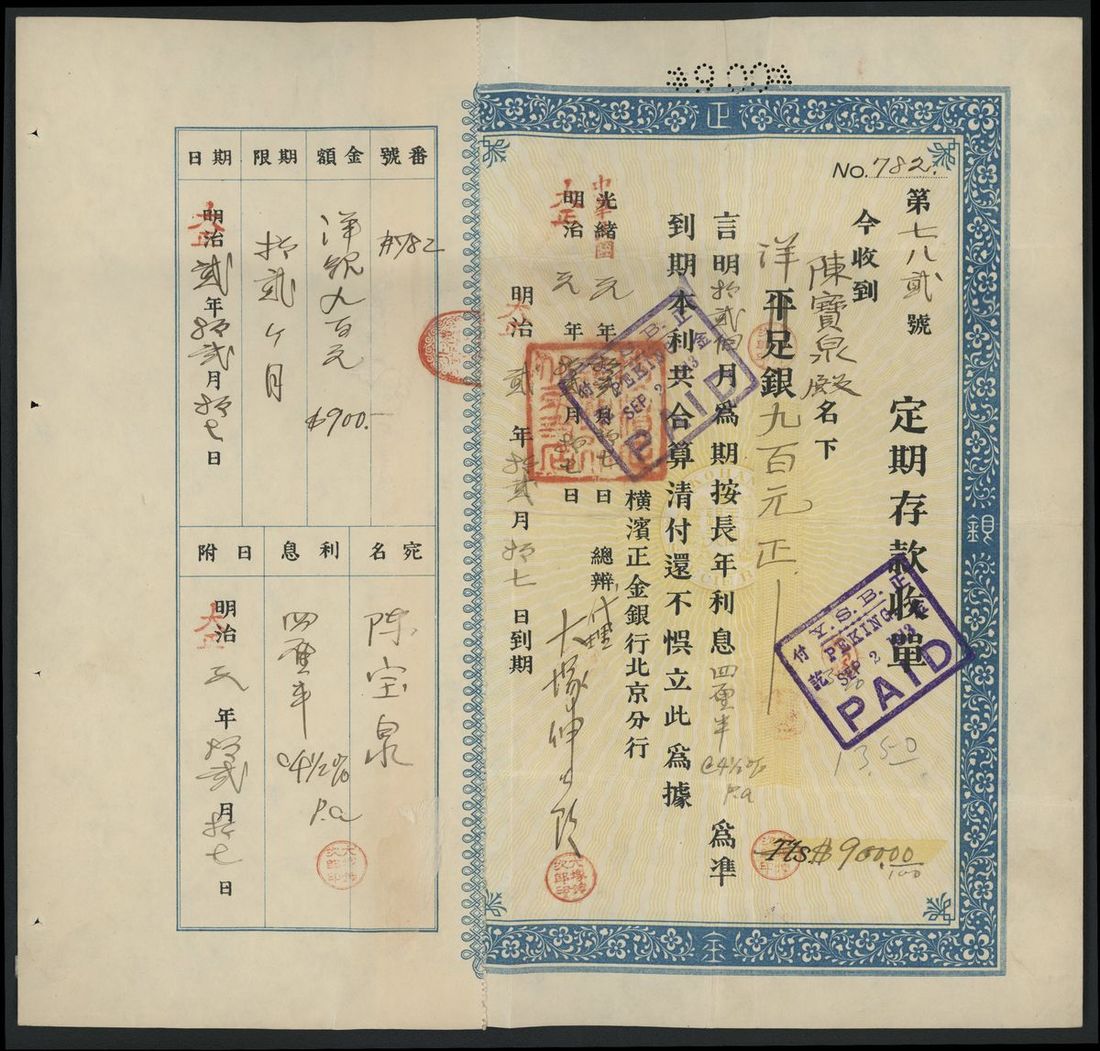 *900*
正
銀
金
No. 782.
第七八貳號
定期存款收單
今收到
陳寶泉殿名下
洋平足銀九百元正
言明拾貳個月爲期按長年利息四厘半 @4½% p.a 爲準
到期本利共合算清付還不悞立此爲據
橫濱正金銀行北京分行
中華民國
光緒元年拾貳月拾七日
總辦代理
大正
明治元年拾貳月拾七日
大正
明治貳年拾貳月拾七日到期
Tls $900 00/100
13.50
Y.S.B.
PEKING
SEP 2
付訖
PAID
Y.S.B.
PEKING
SEP 2
PAID
番號
#782
金額
洋銀九百元
$900.-
期限
拾貳ヶ月
期日
大正
明治貳年拾貳月拾七日
宛名
陈宝泉
利息
四厘半
@4½% p.a
日附
大正
明治元年拾貳月拾七日